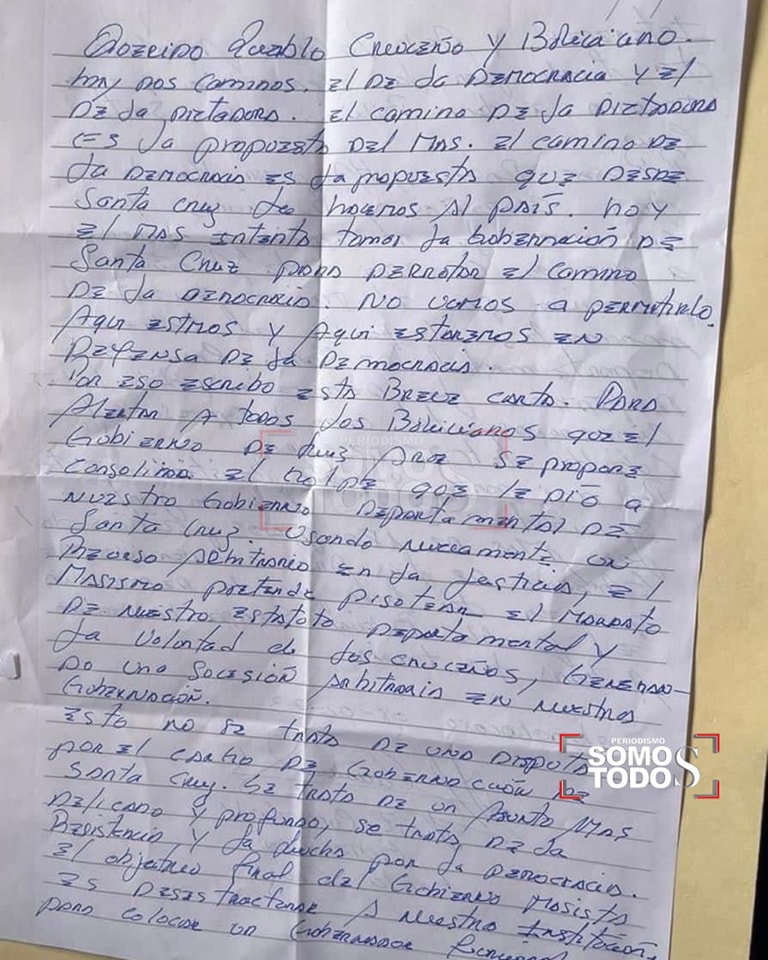 Querido Pueblo Cruceño y Boliviano.
hay dos caminos. El de la Democracia y el
de la dictadura. El camino de la Dictadura
es la propuesta del Mas. El camino de
la Democracia es la propuesta que desde
Santa Cruz le hacemos al país. hoy
el Mas intenta tomar la Gobernación de
Santa Cruz para derrotar el camino
de la democracia. No vamos a permitirlo.
Aqui estmos y Aqui estaremos en
Defensa de la Democracia.
Por eso escribo esta Breve carta. Para
Alertar a todos los Bolivianos que el
Gobierno de Luis Arce se propone
consolidar el Golpe que le dio a
nuestro Gobierno departamental de
Santa Cruz. Usando nuevamente un
Recurso Arbitrario en la Justicia, el
Masismo pretende pisotear el Mandato
de nuestro Estatuto departamental y
la voluntad de los cruceños, generan-
do una sucesión Arbitraria en nuestra
Gobernación.
Esto no se trata de una disputa
por el cargo de Gobernador de
Santa Cruz. Se trata de un Asunto Mas
delicado y profundo, se trata de la
Resistencia y la lucha por la democracia.
El objetivo final del Gobierno Masista
es desestructurar A nuestra Institución,
para colocar un Gobernador
PERIODISMO
SOMOS
TODOS
PERIODISMO
SOMOS
TODOS